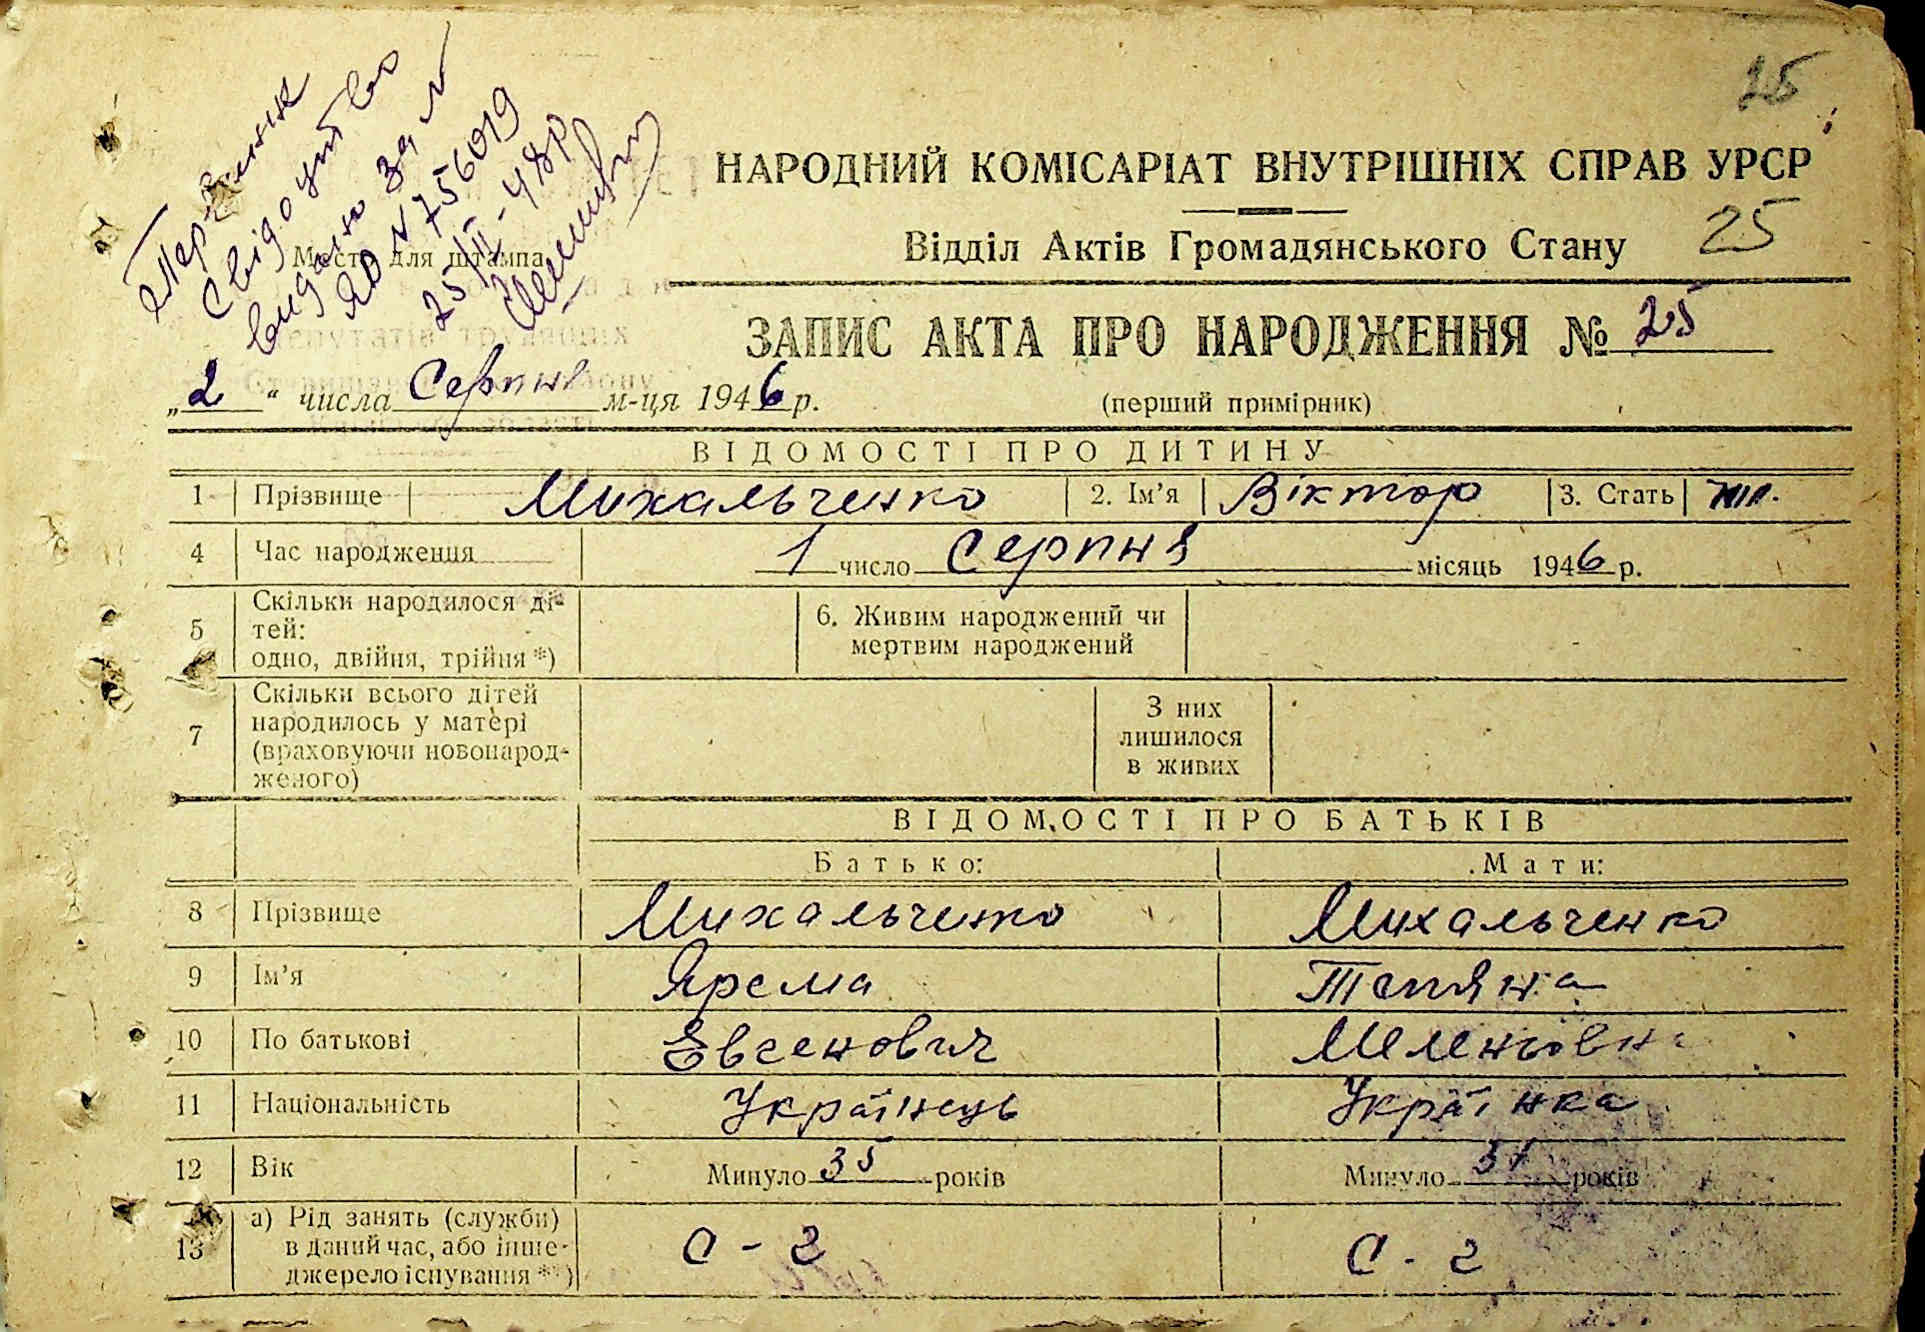 25
НАРОДНИЙ КОМІСАРІАТ ВНУТРІШНІХ СПРАВ УРСР
Відділ Актів Громадянського Стану 25
свідоцтво
видано за №
ЯО № 756019
25/III - 48р
Місце для штампа
депутатів трудящих
ЗАПИС АКТА ПРО НАРОДЖЕННЯ № 25
„2“ числа Серпня м-ця 1946 р.
(перший примірник)
ВІДОМОСТІ ПРО ДИТИНУ
1 Прізвище Михальченко 2. Ім’я Віктор 3. Стать чол.
4 Час народження 1 число Серпня місяць 1946 р.
5 Скільки народилося ді-
тей:
одно, двійня, трійня *)
6. Живим народжений чи
мертвим народжений
7 Скільки всього дітей
народилось у матері
(враховуючи новонарод-
женого)
З них
лишилося
в живих
ВІДОМОСТІ ПРО БАТЬКІВ
Батько: Мати:
8 Прізвище Михальченко Михальченко
9 Ім’я Ярема Тетяна
10 По батькові Евсенович
11 Національність Українець Українка
12 Вік Минуло 35 років Минуло 31 років
13 а) Рід занять (служби)
в даний час, або інше
джерело існування **)
С - г С - г